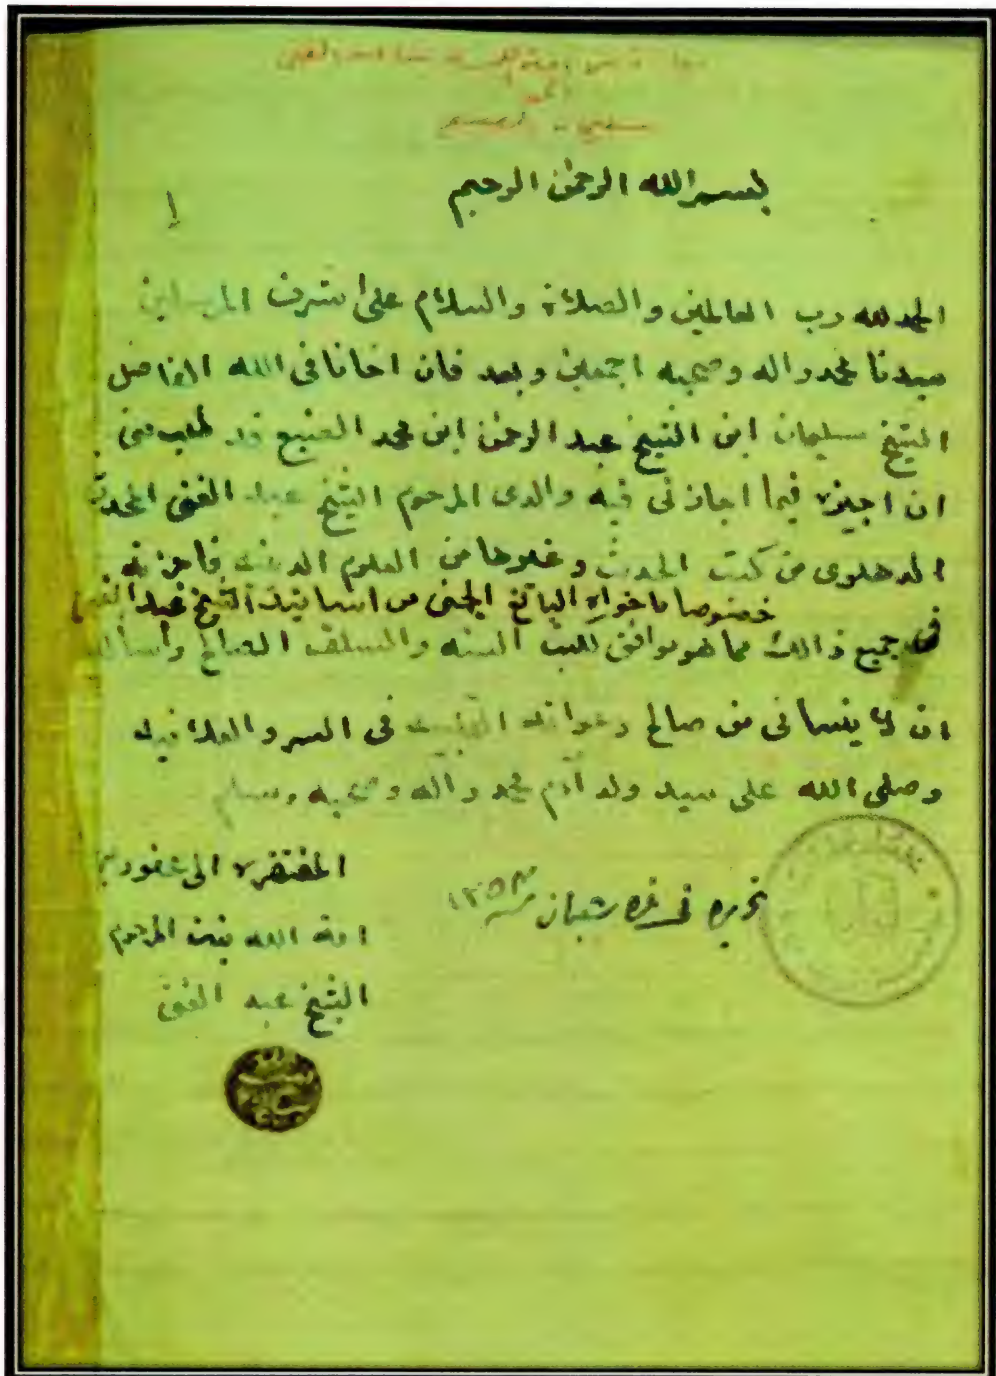 بسم الله الرحمن الرحيم
الحمد لله رب العالمين والصلاة والسلام على اشرف المرسلين
سيدنا محمد واله وصحبه اجمعين وبعد فان اخانا فى الله الفاضل
الشيخ سليمان ابن الشيخ عبد الرحمن ابن محمد الصنيع قد طلب منى
ان اجيزه فيما اجازنى فيه والدى المرحوم الشيخ عبد الغنى المحدث
الدهلوى من كتب الحديث وغيرها من العلوم الدينيه فاجزته
خصوصا ما حواه اليانع الجنى من اسانيد الشيخ عبد الغنى
فى جميع ذالك مما هو موافق السنه والسلف الصالح وأسأله
ان لا ينسانى من صالح دعواته فى السر والعلانيه
وصلى الله على سيد ولد آدم محمد واله وصحبه وسلم
المفتقره الى عفو
تحريره فى غره شعبان سنه ١٣٥٣
امة الله بنت المرحوم
الشيخ عبد الغنى